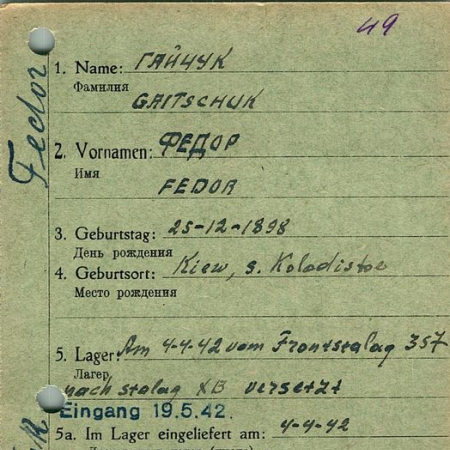 49
1. Name: ГАЙЧУК
Фамилия
GAITSCHUK
Fedor
2. Vornamen: ФЕДОР
Имя
FEDOR
3. Geburtstag: 25-12-1898
День рождения
4. Geburtsort: Kiew, s. Kolodistoe
Место рождения
5. Lager: Am 4-4-42 vom Frontstalag 357
Лагер
nach stalag XB versetzt
Eingang 19.5.42.
5a. Im Lager eingeliefert am: 4-4-42